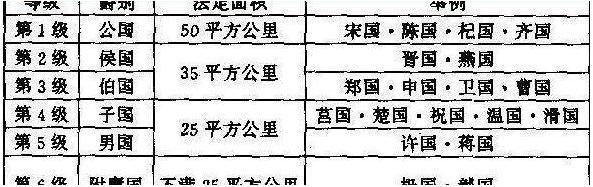 等级 爵别 法定面积 举例
第1级 公国 50平方公里 宋国·陈国·杞国·齐国
第2级 侯国 35平方公里 晋国·燕国
第3级 伯国 郑国·申国·卫国·曹国
第4级 子国 25平方公里 莒国·楚国·祝国·温国·滑国
第5级 男国 许国·蒋国
第6级 附庸国 不满25平方公里